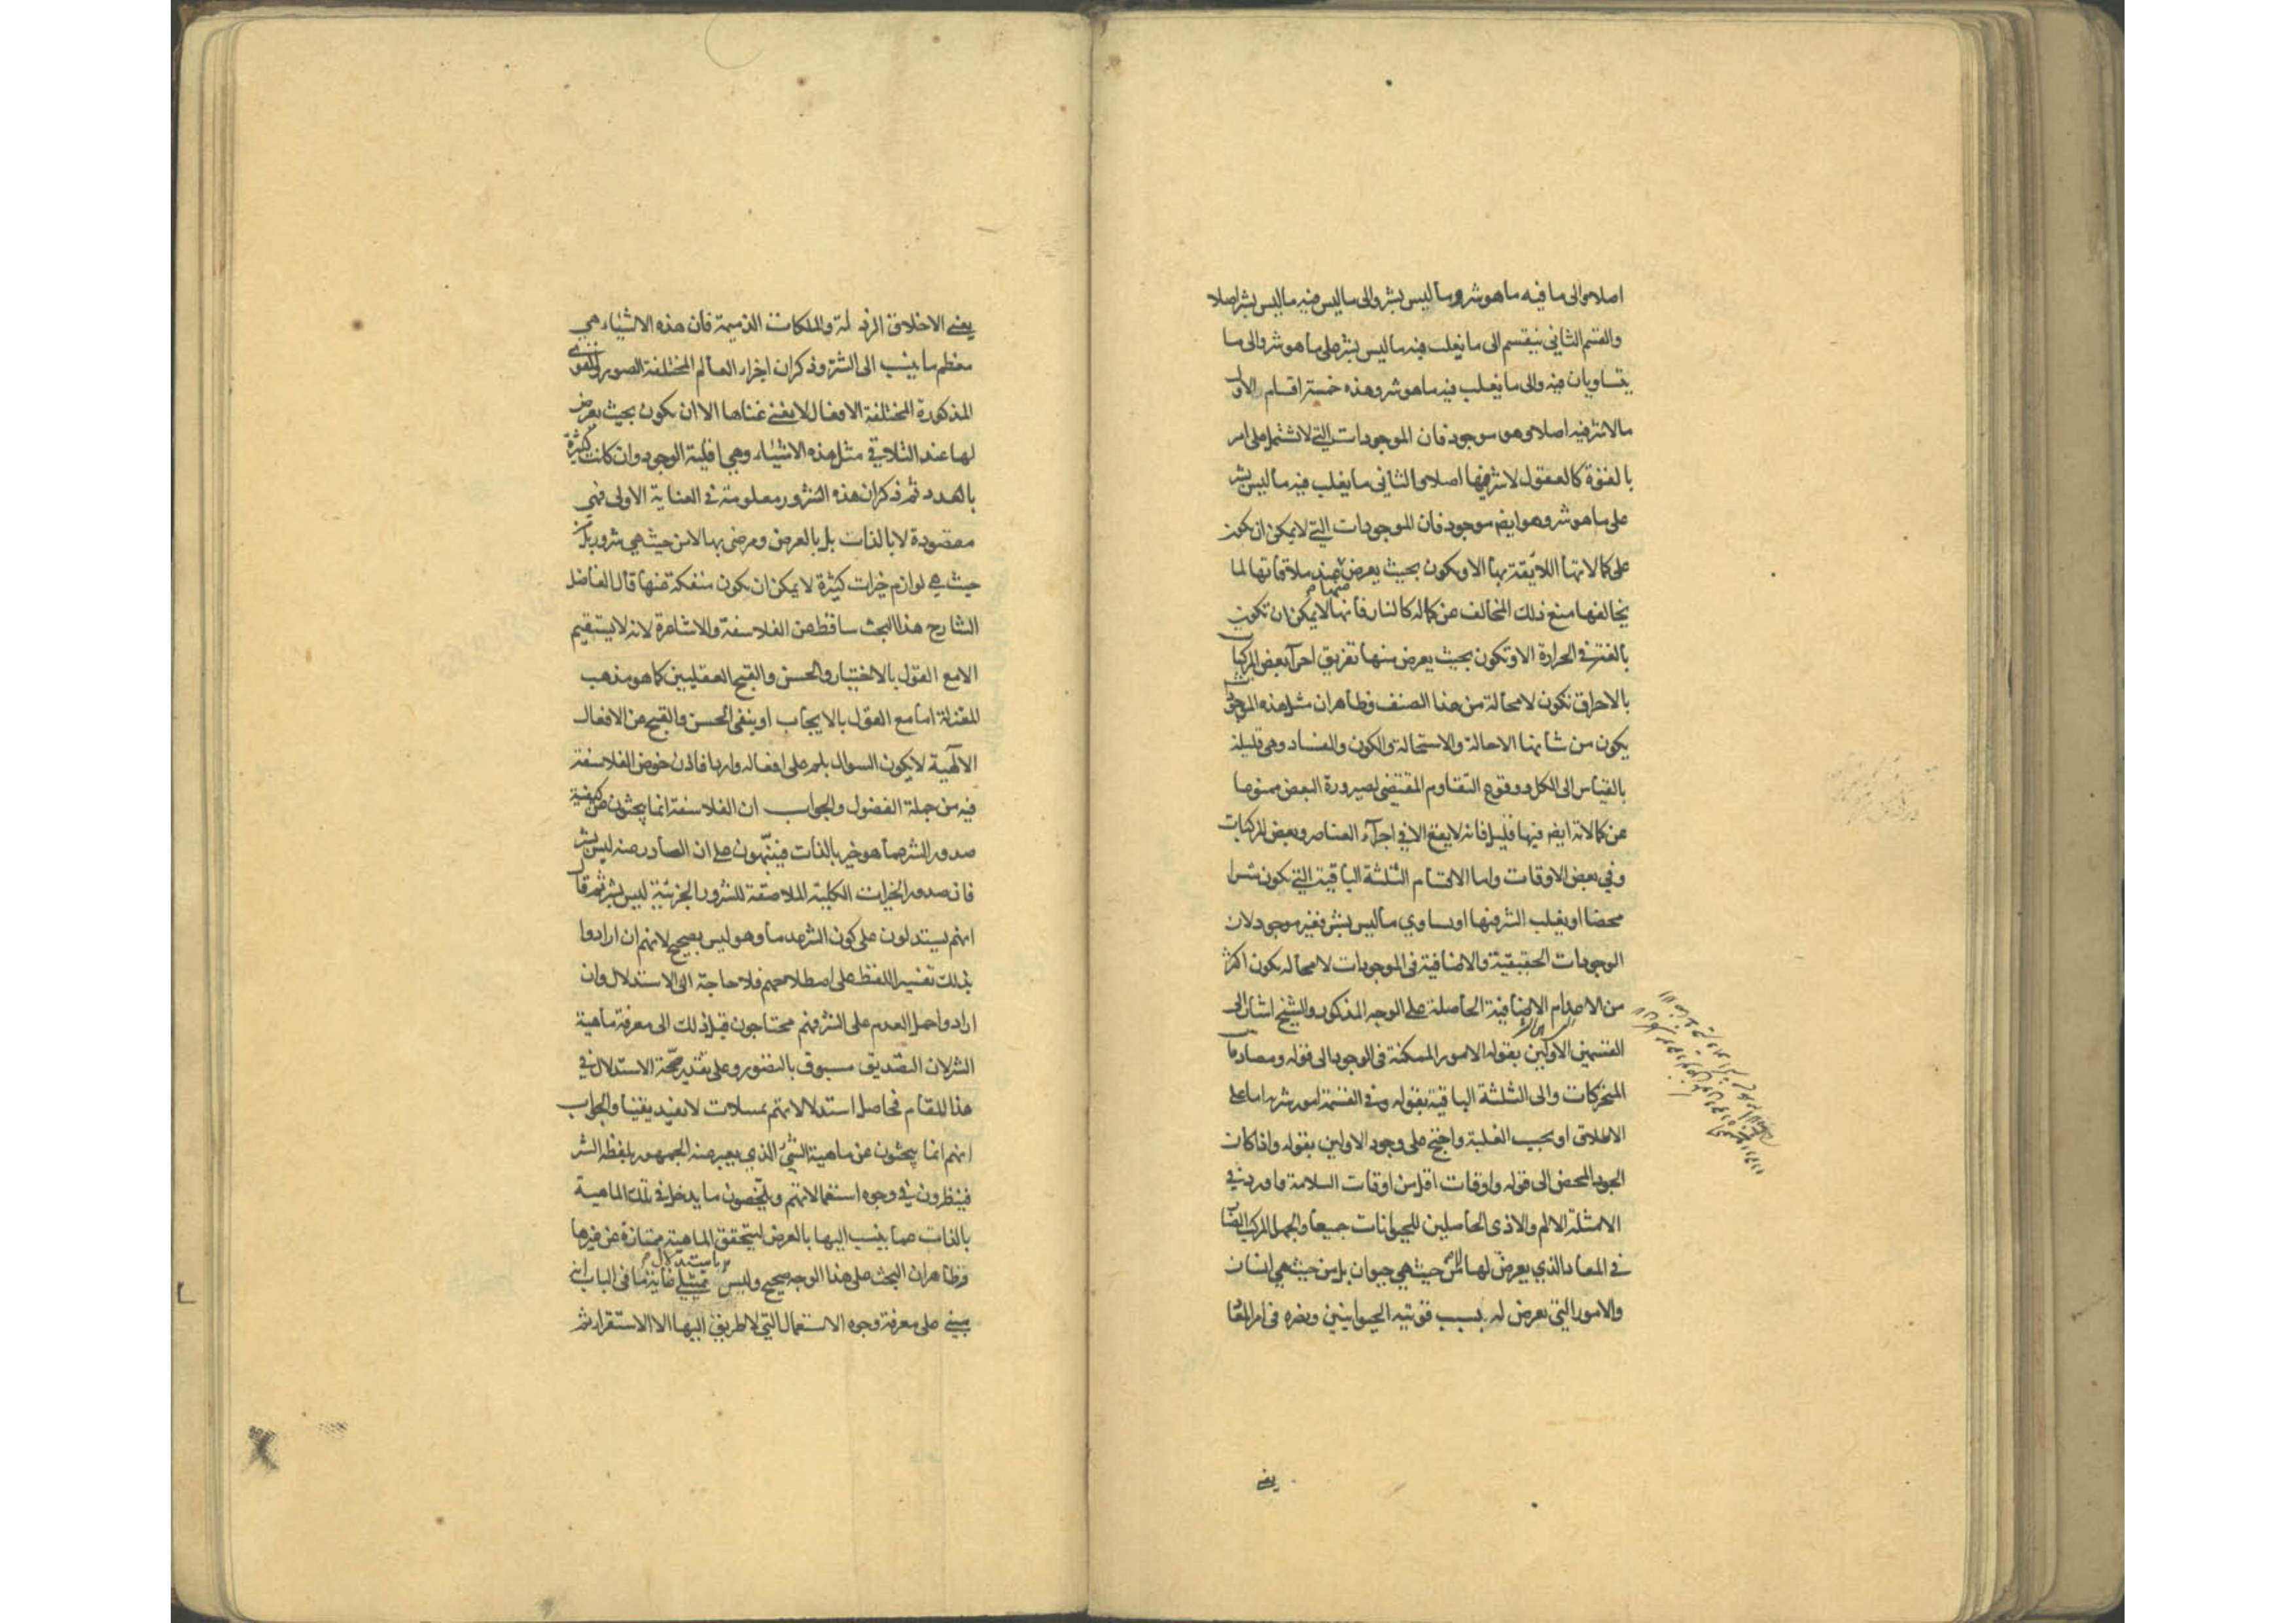 اصلا والى ما فيه ما هو شر وما ليس بشر والى ما ليس فيه ما ليس بشر اصلا
والقسم الثانى ينقسم الى ما يغلب فيه ما ليس بشر على ما هو شر والى ما
يتساويان فيه والى ما يغلب فيه ما هو شر وهذه خمسة اقسام الاول
ما لا شر فيه اصلا وهو موجود فان الموجودات التي لا تشتمل على امر
بالقوة كالعقول لا شر فيها اصلا والثانى ما يغلب فيه ما ليس بشر
على ما هو شر وهو ايضا موجود فان الموجودات التي لا يمكن ان تكون
على كمالاتها اللائقة بها الا وتكون بحيث يعرض منها عند ملاقاتها لما
يخالفها منع ذلك المخالف عن كماله كالنار فانها لا يمكن ان تكون
بالغة فى الحرارة الا وتكون بحيث يعرض منها تفريق اجزآء بعض المركبات
بالاحراق تكون لا محالة من هذا الصنف وظاهر ان مثل هذه الموجودات
يكون من شانها الاحالة والاستحالة والكون والفساد وهى قليلة
بالقياس الى الكل ووقوع التقاوم المقتضى لصيرورة البعض ممنوعا
عن كمالاته ايضا فيها قليل فانه لا يقع الا فى اجزآء العناصر وبعض المركبات
وفي بعض الاوقات واما الاقسام الثلثة الباقية التي تكون شرا
محضا او يغلب الشر فيها او يساوي ما ليس بشر فغير موجود لان
الوجودات الحقيقية والاضافية فى الموجودات لا محالة يكون اكثر
من الاعدام الاضافية الحاصلة على الوجه المذكور والشيخ اشار الى
القسمين الاولين بقوله الامور الممكنة فى الوجود الى قوله ومصادمات
المتحركات والى الثلثة الباقية بقوله وفى القسمة امور شرية اما على
الاطلاق او بحسب الغلبة واحتج على وجود الاولين بقوله واذا كان
الجود المحض الى قوله واوقات اقل من اوقات السلامة واورد فى
الامثلة الالم والاذى الحاصلين للحيوانات جميعا والجهل المركب الضار
فى المعاد الذي يعرض لها لا من حيث هي حيوان بل من حيث هى انسان
والامور التي تعرض له بسبب قوتيه الحيوانيتين وتضره فى امر المعاد
يعنى
يعني الاخلاق الرذلة والملكات الذميمة فان هذه الاشياء هي
معظم ما ينسب الى الشر وذكر ان اجزاء العالم المختلفة الصور والقوى
المذكورة المختلفة الافعال لا يغنى غناها الا ان تكون بحيث يعرض
لها عند التلاقي مثل هذه الاشياء وهي اقلية الوجود وان كانت كثيرة
بالعدد ثم ذكر ان هذه الشرور معلومة فى العناية الاولى فهي
مقصودة لا بالذات بل بالعرض ومرضى بها لا من حيث هي شرور بل من
حيث هى لوازم خيرات كثيرة لا يمكن ان تكون منفكة عنها قال الفاضل
الشارح هذا البحث ساقط عن الفلاسفة والاشاعرة لانه لا يستقيم
الا مع القول بالاختيار والحسن والقبح العقليين كما هو مذهب
المعتزلة اما مع القول بالايجاب او بنفى الحسن والقبح عن الافعال
الآلهية لا يكون السوال بلم على افعاله واردا فاذن خوض الفلاسفة
فيه من جملة الفضول والجواب ان الفلاسفة انما يبحثون عن كيفية
صدور الشر عما هو خير بالذات فينبّهون على ان الصادر عنه ليس بشر
فان صدور الخيرات الكلية الملاصقة للشرور الجزئية ليس بشر ثم قال
انهم يستدلون على كون الشر عدما وهو ليس بصحيح لانهم ان ارادوا
بذلك تفسير اللفظ على اصطلاحهم فلا حاجة الى الاستدلال وان
ارادوا حمل العدم على الشر فهم محتاجون قبل ذلك الى معرفة ماهية
الشر لان التصديق مسبوق بالتصور وعلى تقدير صحّة الاستدلال في
هذا المقام فحاصل استدلالاتهم تمثيلات لا تفيد يقينا والجواب
انهم انما يبحثون عن ماهية الشئ الذي يعبر عنه الجمهور بلفظة الشر
فينظرون في وجوه استعمالاتهم ويلخصون ما يدخل في تلك الماهية
بالذات عما ينسب اليها بالعرض ليتحقق الماهية ممتازة عن غيرها
وظاهر ان البحث على هذا الوجه صحيح وليس باستدلال تمثيلي غاية ما فى الباب انه
يبنى على معرفة وجوه الاستعمال التي لا طريق اليها الا الاستقراء ثم